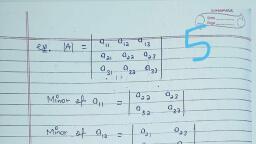 eg. |A| = | a11 a12 a13 |
| a21 a22 a23 |
| a31 a32 a33 |
5
Minor of a11 = | a22 a23 |
| a32 a33 |
Minor of a12 = | a21 a23 |